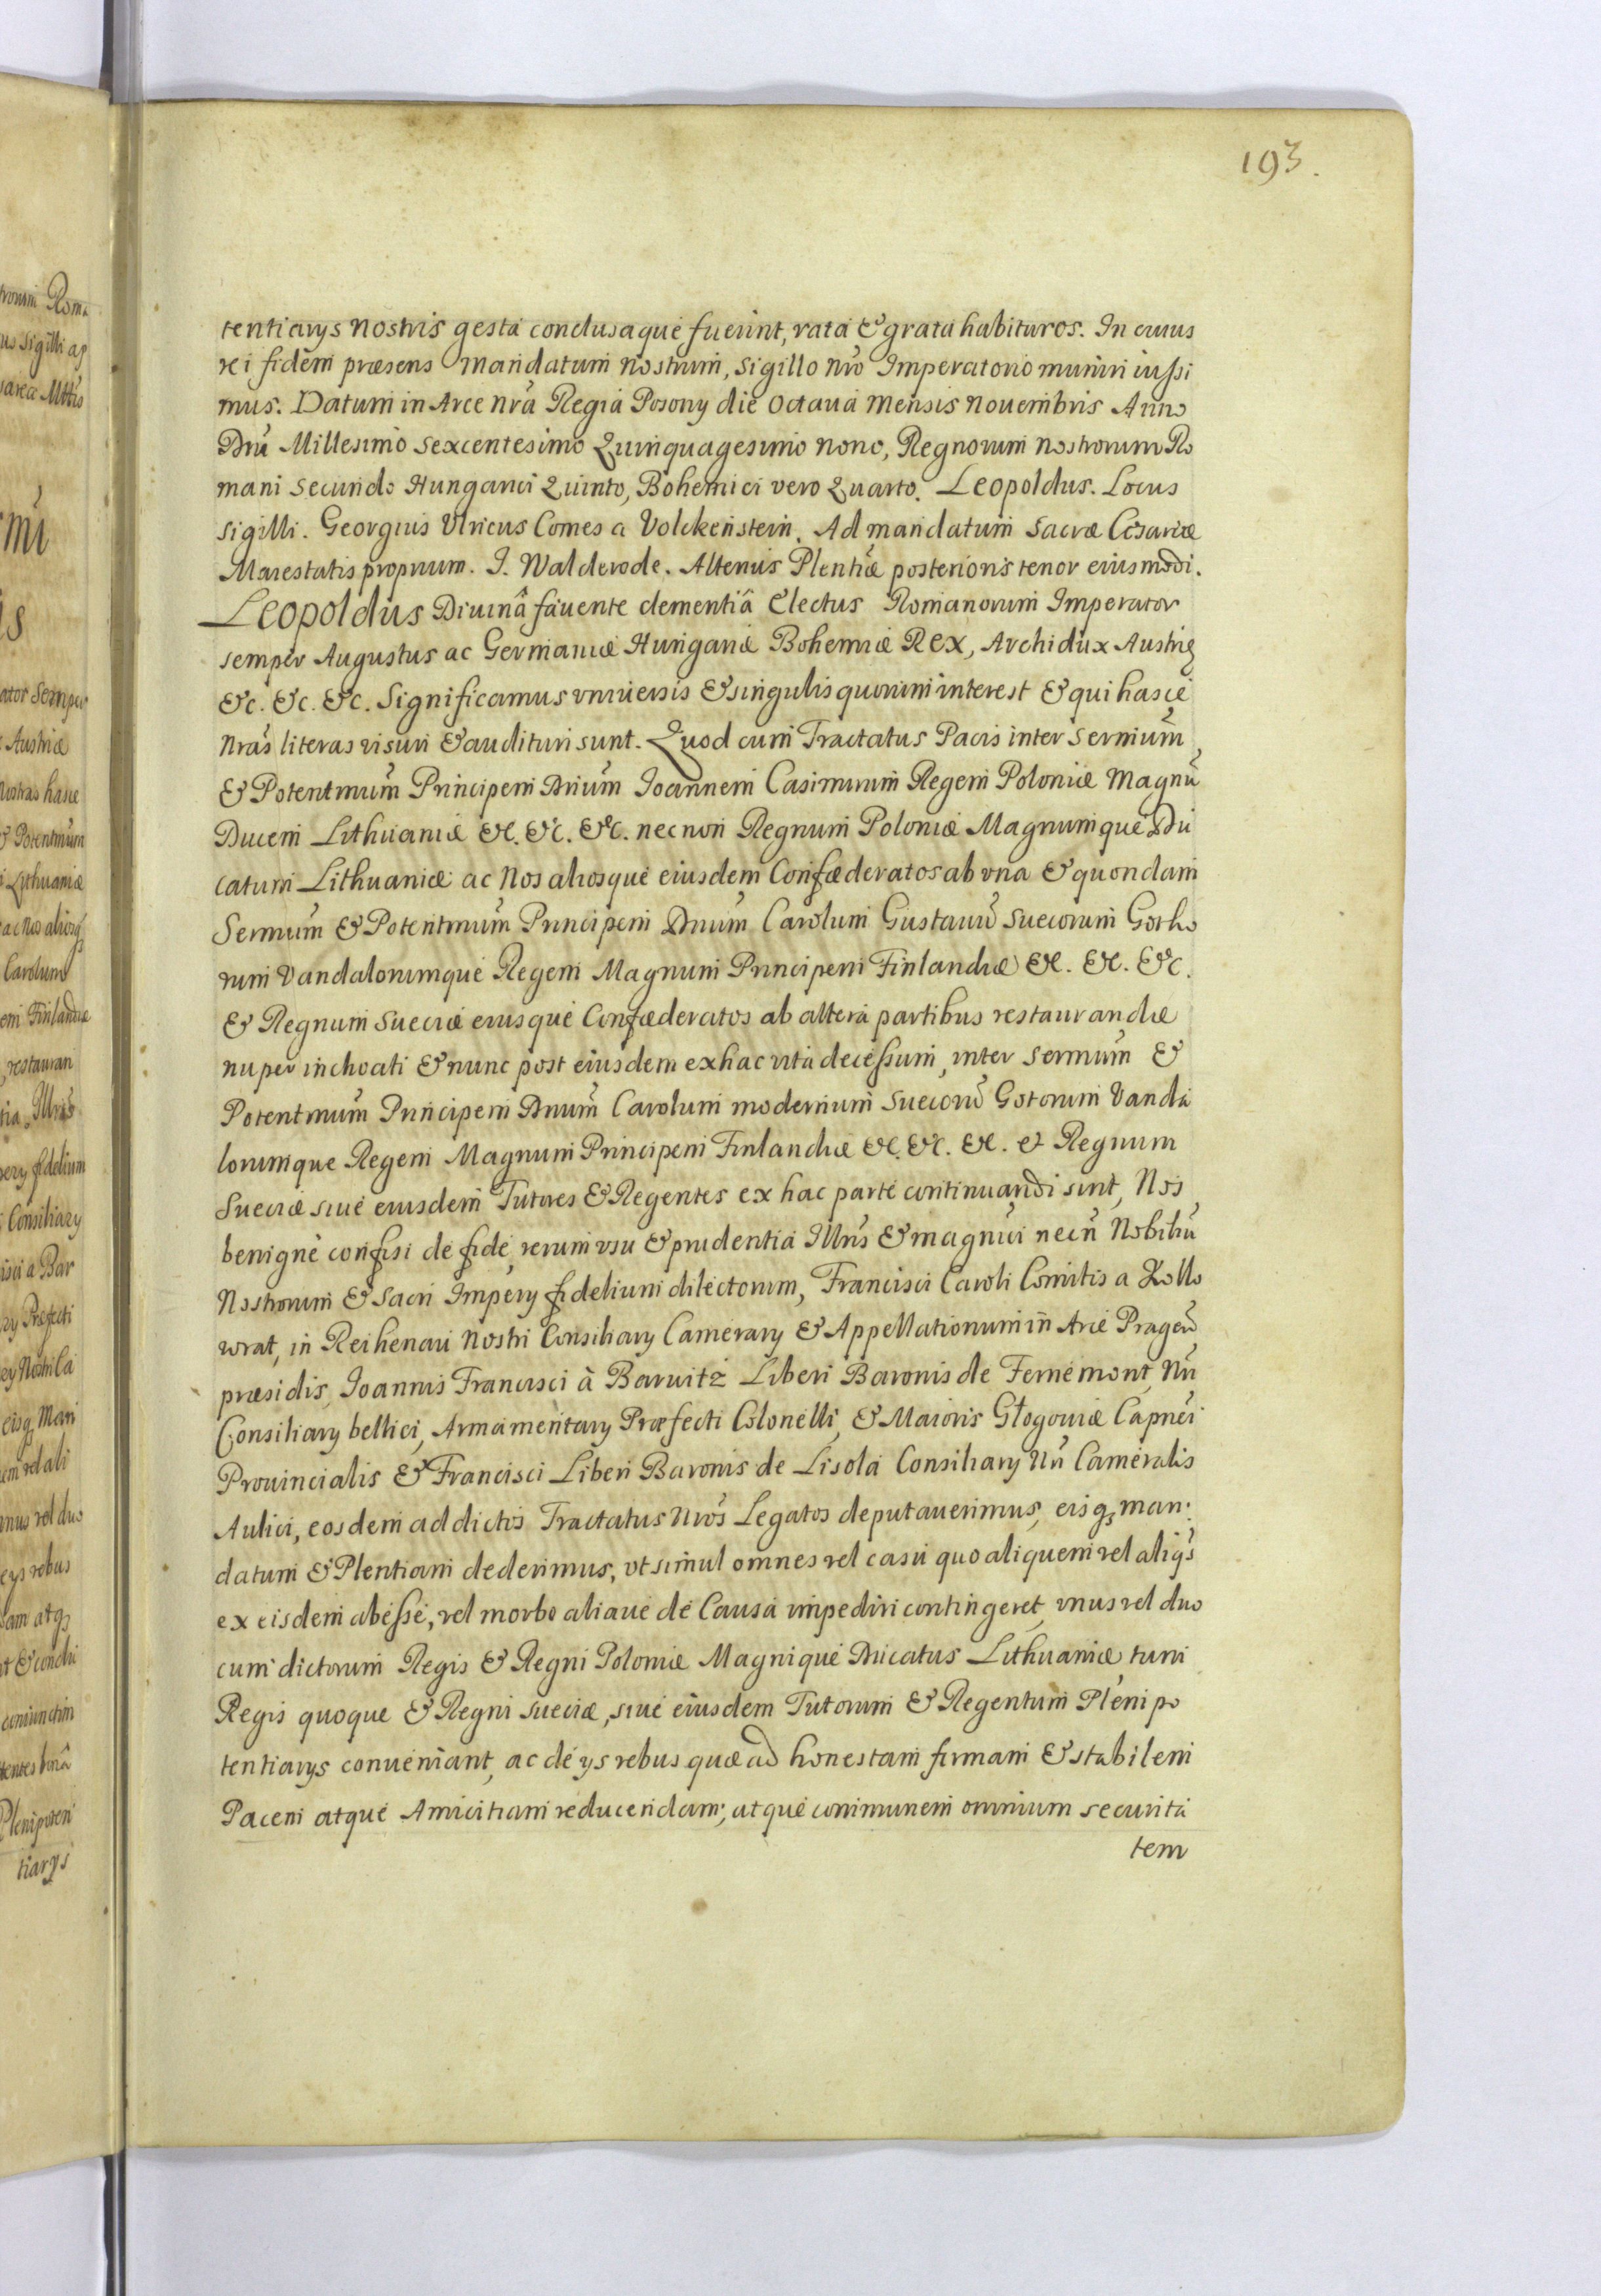 193.
tentiarys nostris gesta conclusaque fuerint, rata & grata habituros. In cuius
rei fidem præsens mandatum nostrum, sigillo nro Imperatorio muniri iussi
mus. Datum in Arce nra Regia Posony die octaua mensis nouembris Anno
Dni Millesimo sexcentesimo Quinquagesimo nono, Regnorum nostrorum Ro
mani secundo Hungarici Quinto, Bohemici vero Quarto. Leopoldus. Locus
sigilli. Georgius Vlricus Comes a Volckenstein. Ad mandatum sacræ Cæsareæ
Maiestatis proprium. I. Walderode. Alterius Plentiæ posterioris tenor eiusmodi.
Leopoldus Diuinâ fauente clementiâ Electus Romanorum Imperator
semper Augustus ac Germaniæ Hungariæ Bohemiæ REX, Archidux Austrię
&c. &c. &c. Significamus vniuersis & singulis quorum interest & qui hasce
nras literas visuri & audituri sunt. Quod cum Tractatus Pacis inter sermum
& Potentmum Principem Dnum Joannem Casimirum Regem Poloniæ Magnu
Ducem Lithuaniæ &c. &c. &c. necnon Regnum Poloniæ Magnumque Du
catum Lithuaniæ ac Nos aliosque eiusdem Confæderatos ab vna & quondam
Sermum & Potentmum Principem Dnum Carolum Gustauu Suecorum Gotho
rum Vandalorumque Regem Magnum Principem Finlandiæ &c. &c. &c.
& Regnum Sueciæ eiusque Confæderatos ab altera partibus restaurandæ
nuper inchoati & nunc post eiusdem ex hac vita decessum, inter sermum &
Potentmum Principem Dnum Carolum modernum Suecoru Gotorum Vanda
lorumque Regem Magnum Principem Finlandiæ &c. &c. &c. et Regnum
Sueciæ siue eiusdem Tutores & Regentes ex hac parte continuandi sint, Nos
benigne confisi de fide, rerum vsu & prudentia Illris & magnici necn Nobiliu
Nostrorum & Sacri Impery fidelium dilectorum, Francisci Caroli Comitis a Kollo
wrat, in Reihenau Nostri Consiliary Camerary & Appellationum in Arce Pragen
præsidis, Joannis Francisci à Barwitz Liberi Baronis de Fernemont, Nri
Consiliary bellici, Armamentary Præfecti Colonelli, & Maioris Głogouiæ Capnei
Prouincialis & Francisci Liberi Baronis de Lisola Consiliary Nri Cameralis
Aulici, eosdem ad dictos Tractatus nros Legatos deputauerimus, eisq; man:
datum & Plentiam dederimus, vt simul omnes vel casu quo aliquem vel aliqs
ex eisdem abesse, vel morbo aliaue de Causa impediri contingeret, vnus vel duo
cum dictorum Regis & Regni Poloniæ Magnique Ducatus Lithuaniæ tum
Regis quoque & Regni Sueciæ, siue eiusdem Tutorum & Regentum Plenipo
tentiarys conueniant, ac de ys rebus quæ ad honestam firmam & stabilem
Pacem atque Amicitiam reducendam; atque communem omnium securita
tem